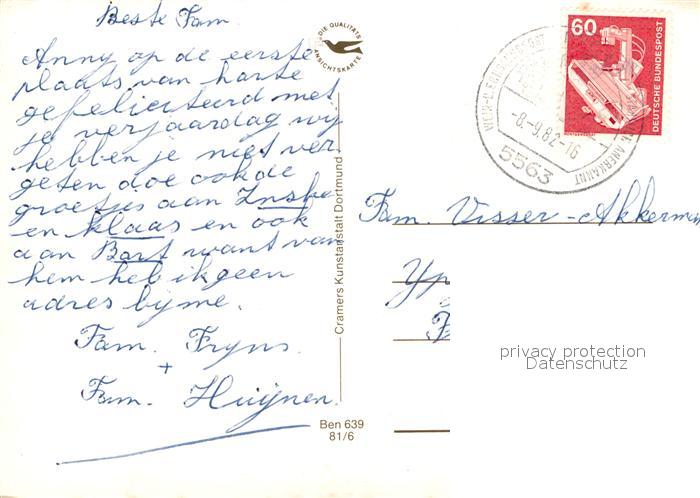 Beste Fam.
Anny op de eerste
plaats van harte
gefeliciteerd met
je verjaardag wy
hebben je niet ver
geten doe ook de
groetjes aan
en klaas en ook
aan Bart want van
hem heb ik geen
adres by me.
Fam. Fryns.
+
Fam. Huijnen.
DIE QUALITÄTS
ANSICHTSKARTE
Cramers Kunstanstalt Dortmund
Ben 639
81/6
60
DEUTSCHE BUNDESPOST
-8.-9.82-16
5563
Fam. Visser-Akkerman
Yp
privacy protection
Datenschutz